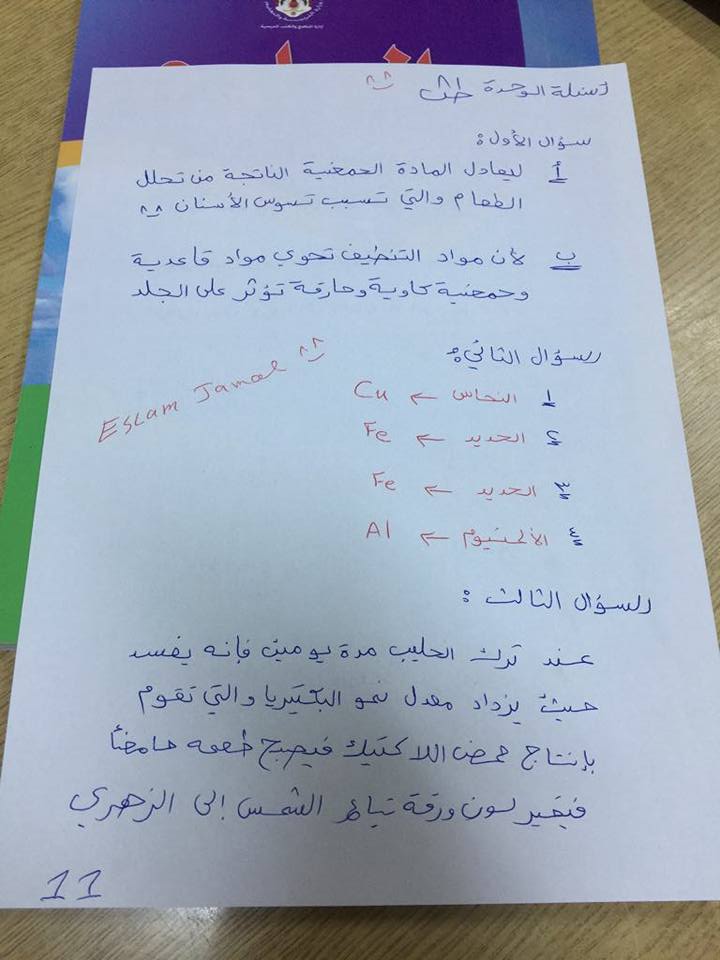 أسئلة الوحدة ^^
سؤال الأول:
أ ليعادل المادة الحمضية الناتجة من تحلل
الطعام والتي تسبب تسوس الأسنان ^^
ب لأن مواد التنظيف تحوي مواد قاعدية
وحمضية كاوية وحارقة تؤثر على الجلد
السؤال الثاني:
Eslam Jamal ^^
١ النحاس ← Cu
٢ الحديد ← Fe
٣ الحديد ← Fe
٤ الألمنيوم ← Al
السؤال الثالث:
عند ترك الحليب مدة يومين فإنه يفسد
حيث يزداد معدل نمو البكتيريا والتي تقوم
بإنتاج حمض اللاكتيك فيصبح طعمه حامضاً
فيتغير لون ورقة تباع الشمس إلى الزهري
11